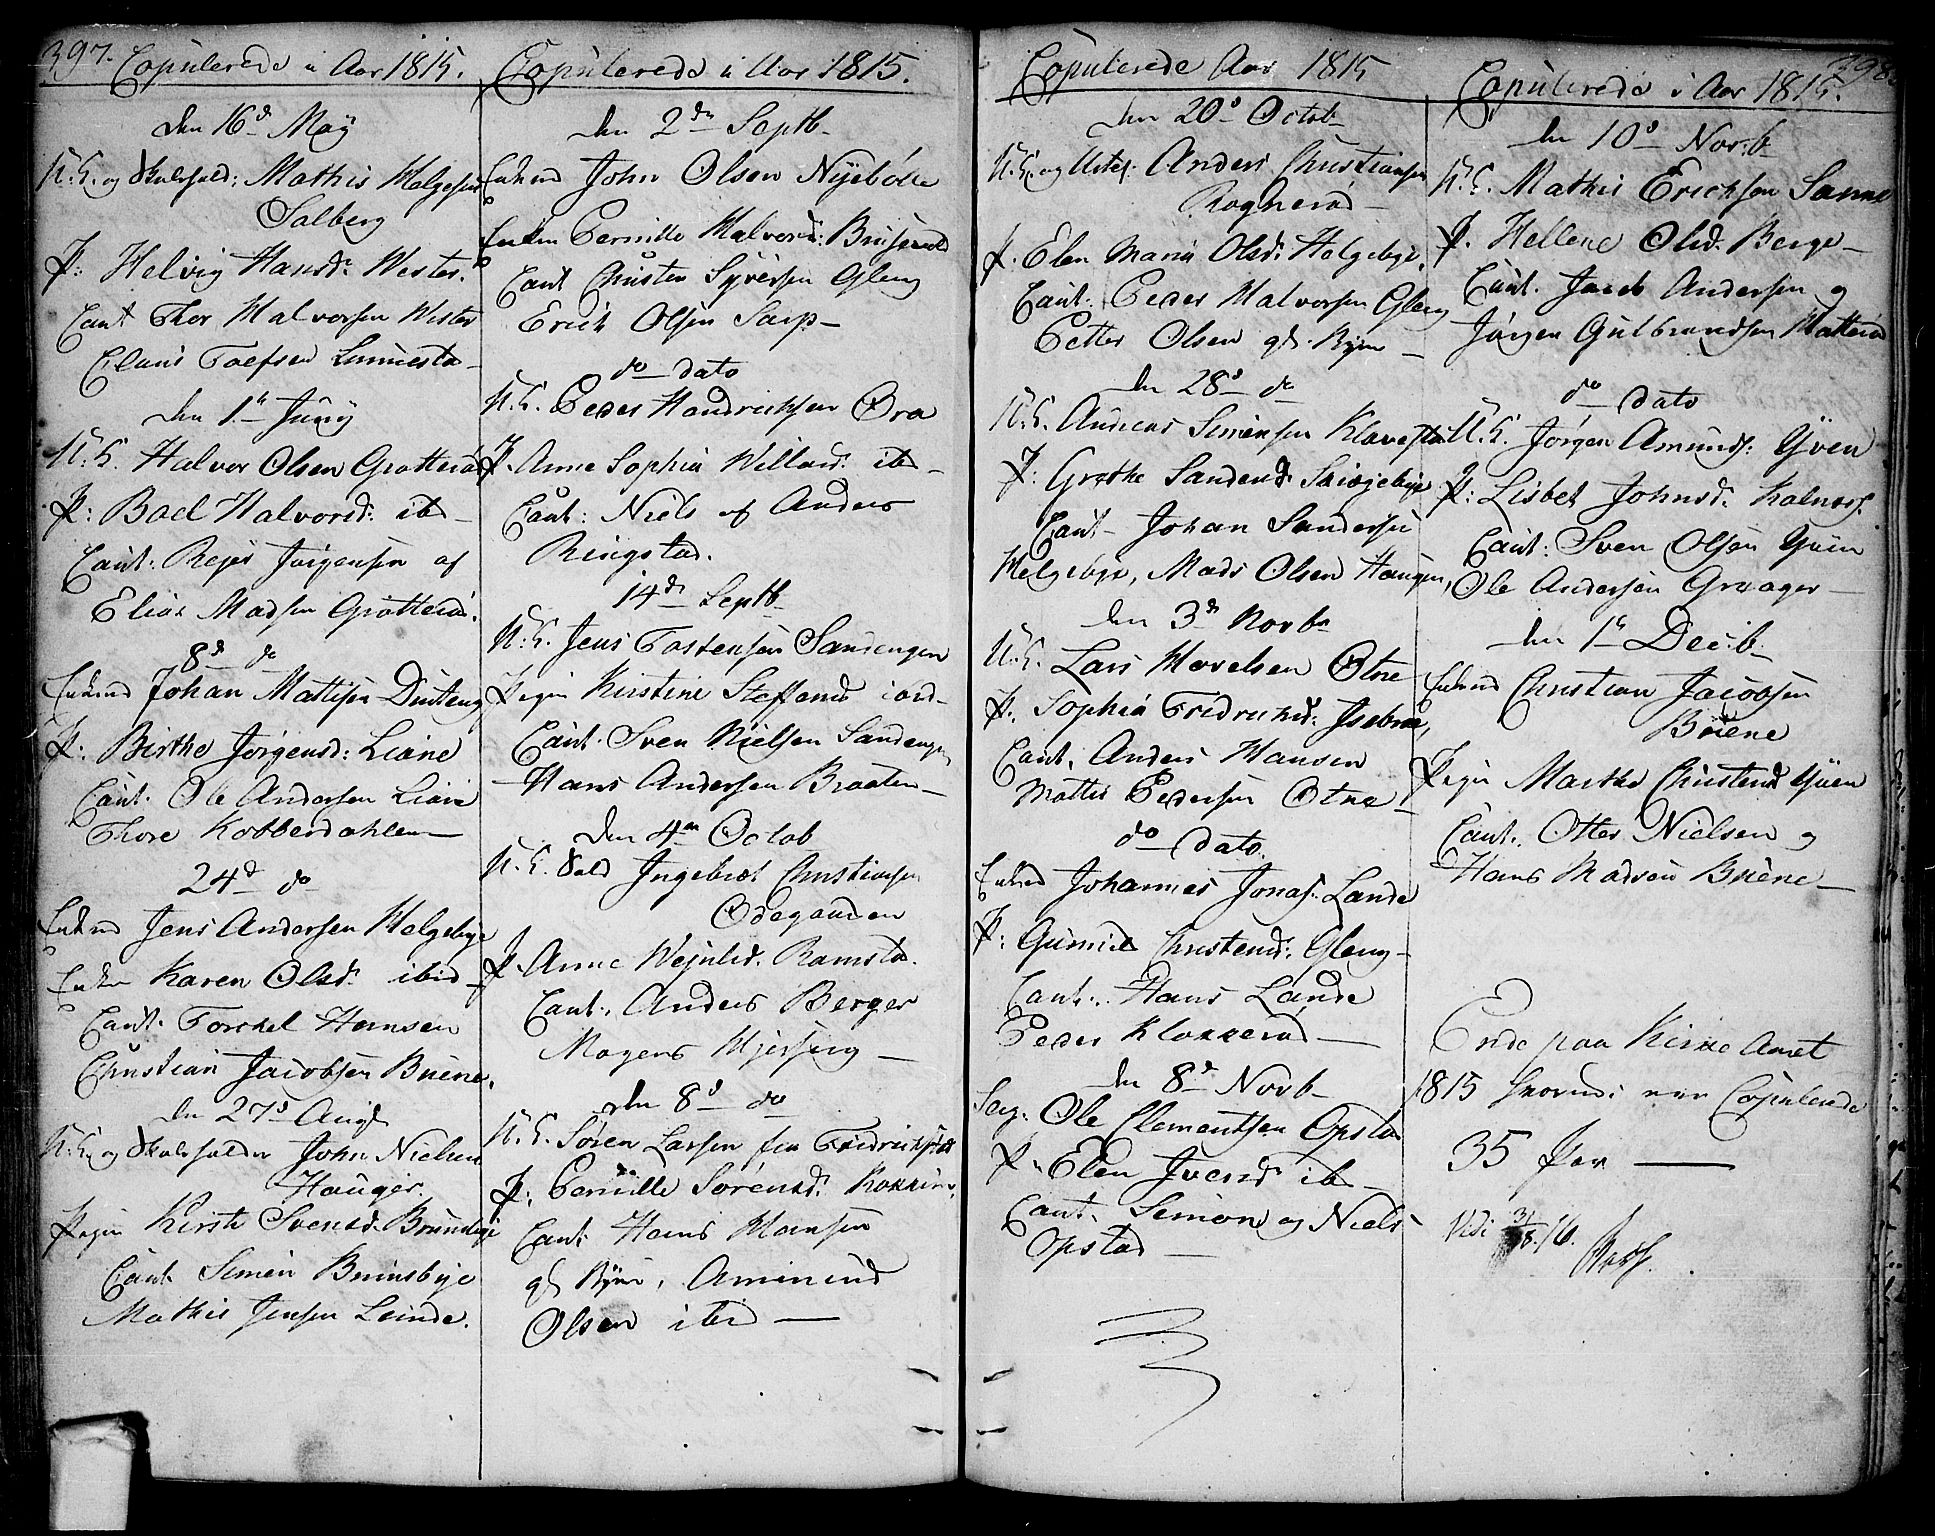 397.
Copulerede i Aar 1815.
den 16d May
U. K. og Mathis Helgesen
Solberg
P: Helvig Hansd: Wester.
Caut Thor Halvorsen Wester
Claus Toefsen
den 1te Juny
U. K. Halvor Olsen Grotterød
P: Boel Halvorsd: ibd
Caut: Rejer Jörgensen af
Elias Madsen Grotterød.
8d do
Enkmd Johan Mattisen
P: Birthe Jörgensd: Liane
Caut. Ole Andersen Liane
Thore Kobberdahlen
24d do
Enkmd Jens Andersen Helgebye
Enken Karen Olsd: ibid
Caut: Torckel Hansen
Christian Jacobsen Buene.
den 27d Augt
U. K. og John Nielsen
Hauger.
Pigen Kirsti Svensd: Brunsbye
Caut Simen Brunsbye
Mathis Jensen Lunde.
Copulerede i Aar 1815.
den 2den Septb
Enkmd John Olsen Nyebølle
Enken Pernille Halvorsd:
Caut Christen Syversen Gleng
Erich Olsen Sarp
do dato
U. K. Peder Hendrichsen Ora
P. Anne Sophia Willads: ibd
Caut: Niels af Anders
Ringstad.
14de Septb
U. K. Jens Tostensen Sandengen
Pigen Kirstine Steffensd
Caut. Sven Nielsen Sandengen
Hans Andersen Braaten
Den 4de Octob
U. K. Sold Ingebret Christiansen
Ødegaarden
P. Anne Wejulsd. Ramsta.
Caut: Anders Berger
Mogens Hjersing
den 8d do
U. K. Søren Larsen fra Fredrichstad
P: Pernille Sørensd:
Caut: Hans Hansen
Amund
Olsen ibid
Copulerede Aar 1815
den 20d Octob
U. K. og Anders Christiansen
Rognerød
P. Elen Maria Olsd: Helgebye,
Caut: Peder Halvorsen Gleng
Petter Olsen
den 28d do
U. K. Andreas Simensen Klavesta
P: Grethe Sandersd
Caut Johan Sandersen
Helgebye, Mads Olsen Haugen,
den 3de Novb
U. K. Lars Hovelsen Otne
P. Sophia Fredrichsd:
Caut. Anders Hansen
Mattis Pedersen Otne
do dato
Enkmd Johannes Jonas: Lande
P: Gunild Christensd: Gleng
Caut. Hans Lande
Peder Klokkerød
den 8d Novb
Ole Clementsen Opsta
P. Elen Iversd ibd
Caut. Simon og Niels
Opstad
398.
Copulerede i Aar 1815.
den 10d Novb
U. K. Mathis Erichsen Sanne
P. Hellene Olsd. Berge
Caut. Jacob Andersen og
Jørgen Gulbrandsen
do dato
U. K. Jörgen Amunds: Yven
P: Lisbet Johnsd: Kalnes.
Caut: Sven Olsen Yven
Ole Andersen Graager
den 1te Decb
Enkmd Christian Jacobsen
Buene
Pigen Marthe Christensd Yven
Caut. Otter Nielsen og
Hans Madsen Buene
Ende paa Kirke Aaret
1815 hvorudi er Copulerede
35 Par
Vidi 31/8. 16.